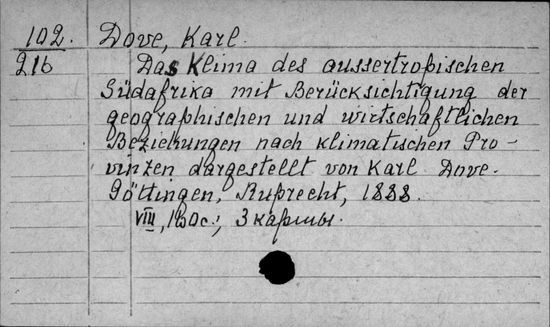 102. Dove, Karl.
216 Das Klima des aussertropischen
Südafrika mit Berücksichtigung der
geographischen und wirtschaftlichen
Beziehungen nach klimatischen Pro-
vinzen dargestellt von Karl Dove.
Göttingen, Ruprecht, 1888.
VIII, 160с.; 3 карты.